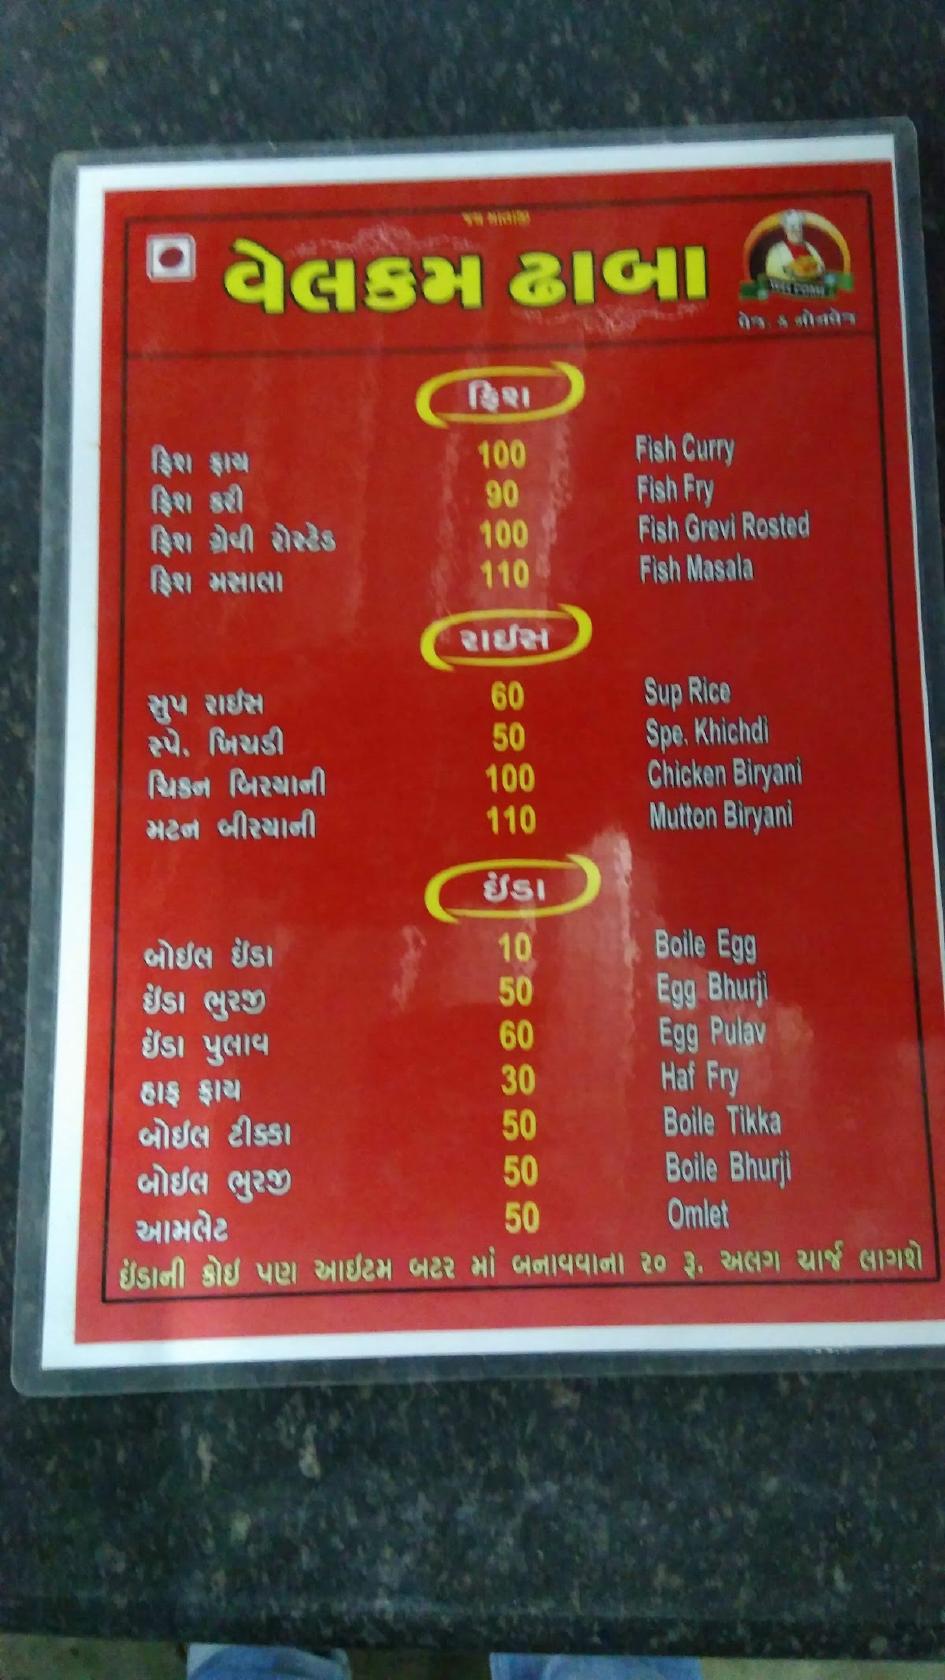 જય માતાજી
વેલકમ ઢાબા
WELCOME
વેજ. & નોનવેજ
ફિશ
ફિશ ફ્રાય 100 Fish Curry
ફિશ કરી 90 Fish Fry
ફિશ ગ્રેવી રોસ્ટેડ 100 Fish Grevi Rosted
ફિશ મસાલા 110 Fish Masala
રાઈસ
સુપ રાઈસ 60 Sup Rice
સ્પે. ખિચડી 50 Spe. Khichdi
ચિકન બિરયાની 100 Chicken Biryani
મટન બીરયાની 110 Mutton Biryani
ઈંડા
બોઈલ ઈંડા 10 Boile Egg
ઈંડા ભુરજી 50 Egg Bhurji
ઈંડા પુલાવ 60 Egg Pulav
હાફ ફ્રાય 30 Haf Fry
બોઈલ ટીક્કા 50 Boile Tikka
બોઈલ ભુરજી 50 Boile Bhurji
આમલેટ 50 Omlet
ઈંડાની કોઈ પણ આઈટમ બટર માં બનાવવાના ૨૦ રૂ. અલગ ચાર્જ લાગશે